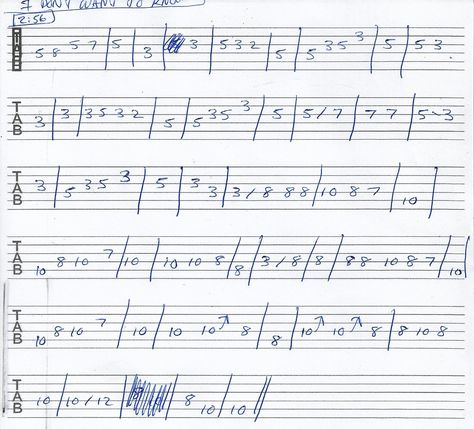 I DON'T WANT TO KNOW
2:56
TAB 5 8 5 7 / 5 / 3 / 3 / 5 3 2 / 5 / 5 3 5 3 / 5 / 5 3
TAB 3 / 3 / 3 5 3 2 / 5 / 5 3 5 3 / 5 / 5/7 / 7 7 / 5~3
TAB 3 / 5 3 5 3 / 5 / 3 3 / 3/8 8 8 / 10 8 7 / 10 /
TAB 10 8 10 7 / 10 / 10 10 8 / 8 / 3/8 / 8 / 8 8 10 8 7 / 10 /
TAB 10 8 10 7 / 10 / 10 10↗ 8 / 8 / 10↗ 10↗ 8 / 8 10 8
TAB 10 / 10/12 / / 8 10 / 10 //